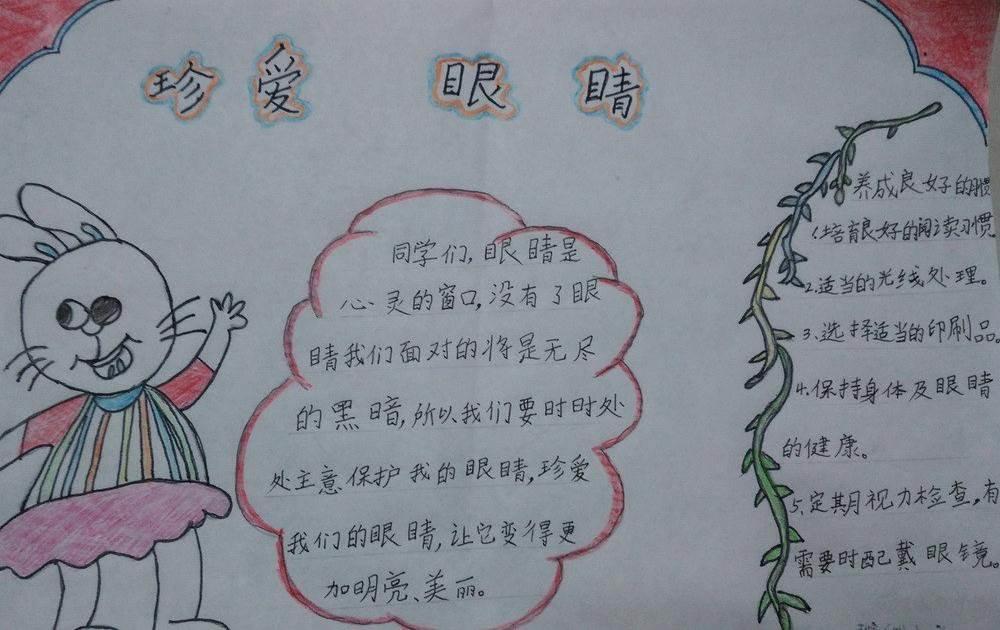 珍爱 眼睛
同学们,眼睛是
心灵的窗口,没有了眼
睛我们面对的将是无尽
的黑暗,所以我们要时时处
处主意保护我的眼睛,珍爱
我们的眼睛,让它变得更
加明亮、美丽。
养成良好的习惯
1.培育良好的阅读习惯
2.适当的光线处理。
3.选择适当的印刷品。
4.保持身体及眼睛
的健康。
5.定期视力检查,有
需要时配戴眼镜。